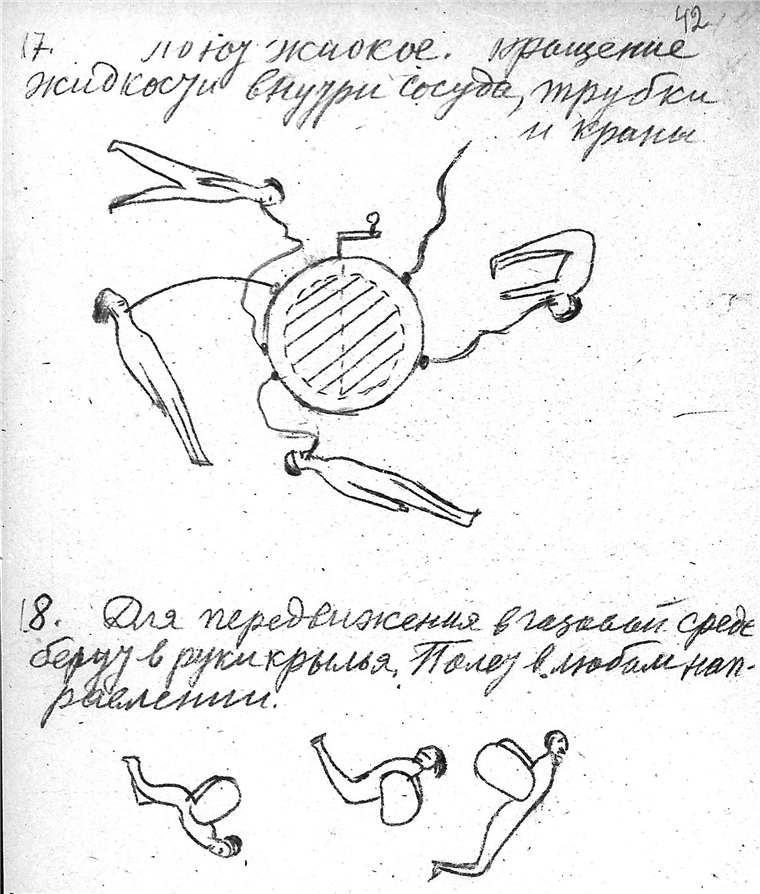 42
17. Пьют жидкое. Вращение
жидкости внутри сосуда, трубки
и краны
18. Для передвижения в газовой среде
берут в руки крылья. Полет в любом нап-
равлении.